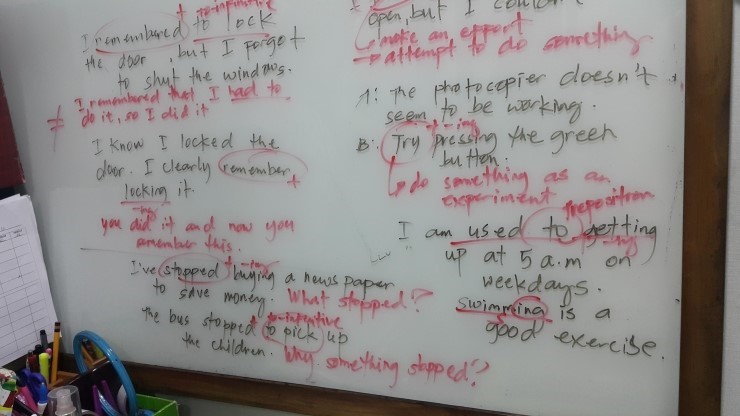 + to-infinitive
I remembered to lock
the door, but I forgot
to shut the windows.
≠ I remembered that I had to
do it, so I did it
I know I locked the
door. I clearly remember +
locking it.
-ing
you did it and now you
remember this.
I've stopped + buying a news paper
-ing
to save money. What stopped?
+ to-infinitive
The bus stopped to pick up
the children. Why something stopped?
open, but I couldn't
make an effort
attempt to do something
A: The photocopier doesn't
seem to be working.
+ -ing
B: Try pressing the green
button.
do something as an
experiment
preposition
I am used to getting
-ing
up at 5 a.m on
weekdays.
Swimming is a
good exercise.